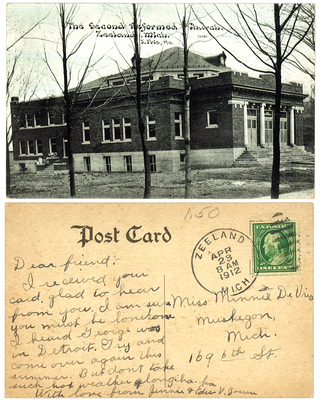 The Second Reformed Church,
Zeeland, Mich.
1.50
Post Card
ZEELAND
APR
23
8 AM
1912
MICH.
Dear friend:-
I received your
card, glad to hear
from you, I am sure
you must be lonesome
I heard George was
in Detroit. Try and
come over again this
summer. But dont take
such hot weather along. ha ha
With love from Jennie &
Miss Minnie De Vries
Muskegon,
Mich.
169 6th St.